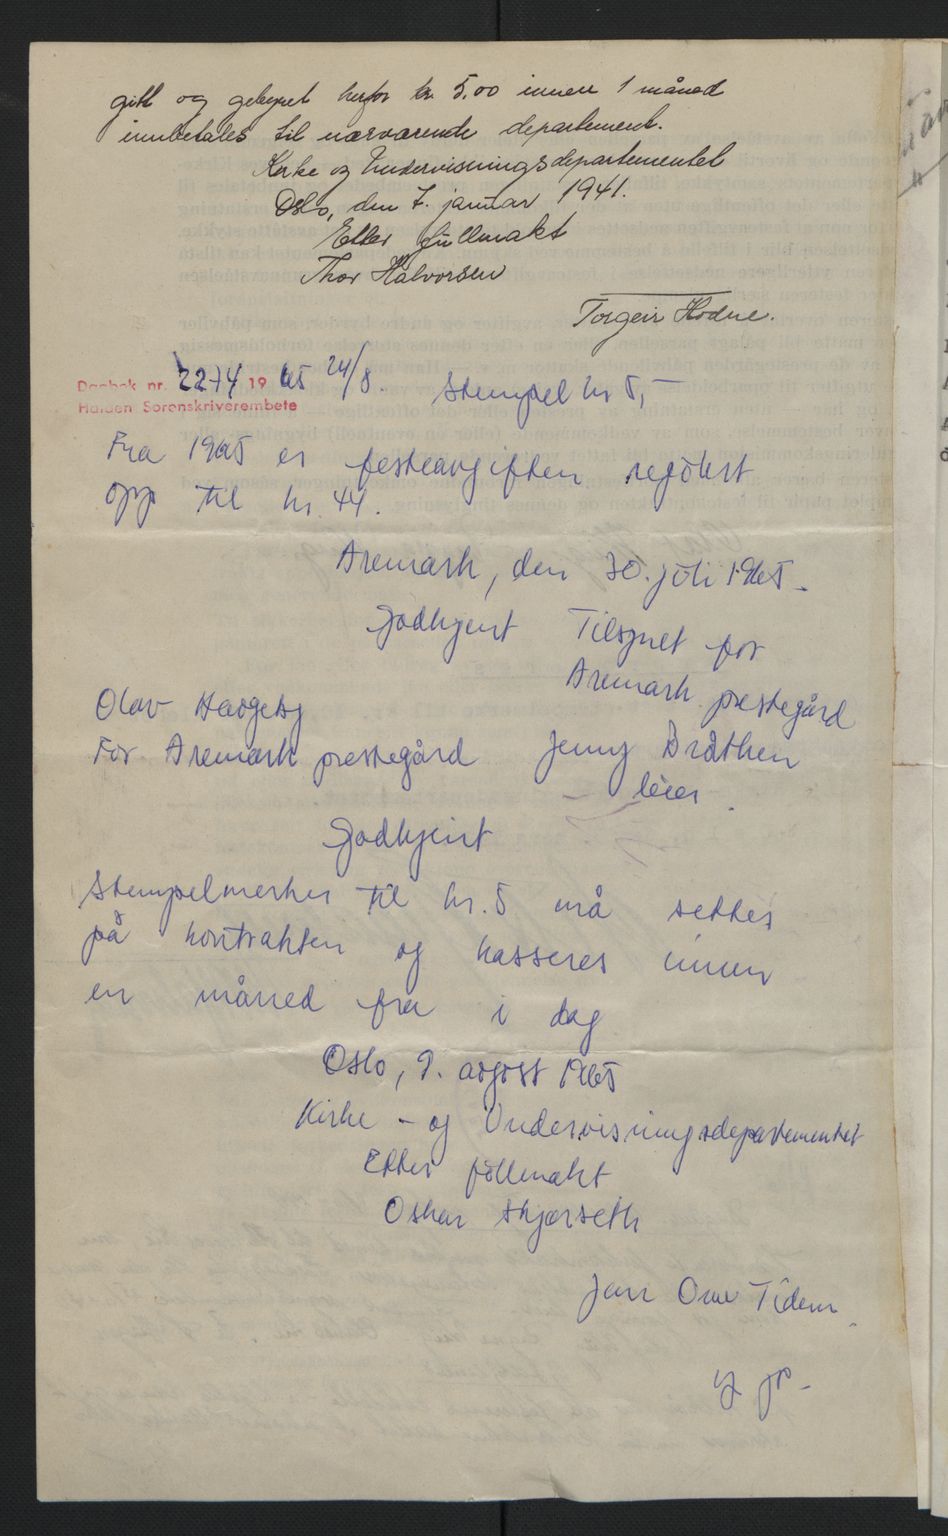 gitt og gebyret herfor kr. 5,00 innen 1 måned
innbetales til nærværende departement.
Kirke og Undervisningsdepartementet
Oslo, den 7. januar 1941.
Etter fullmakt
Thor Halvorsen
Torgeir Hodne.
Dagbok nr. 2274 19 65 24/8. Stempel kr 5,-
Halden Sorenskriverembete
Fra 1965 er festeavgiften regulert
opp til kr. 44.
Aremark, den 30. juli 1965.
Godkjent Tilsynet for
Aremark prestegård
Olav Haugeby
For Aremark prestegård Jenny Bråthen
leier.
Godkjent
Stempelmerker til kr. 5 må settes
på kontrakten og kasseres innen
en måned fra i dag
Oslo, 9. august 1965
Kirke - og Undervisningsdepartementet
Etter fullmakt
Oskar Skjørseth
Jan Ove Tidem